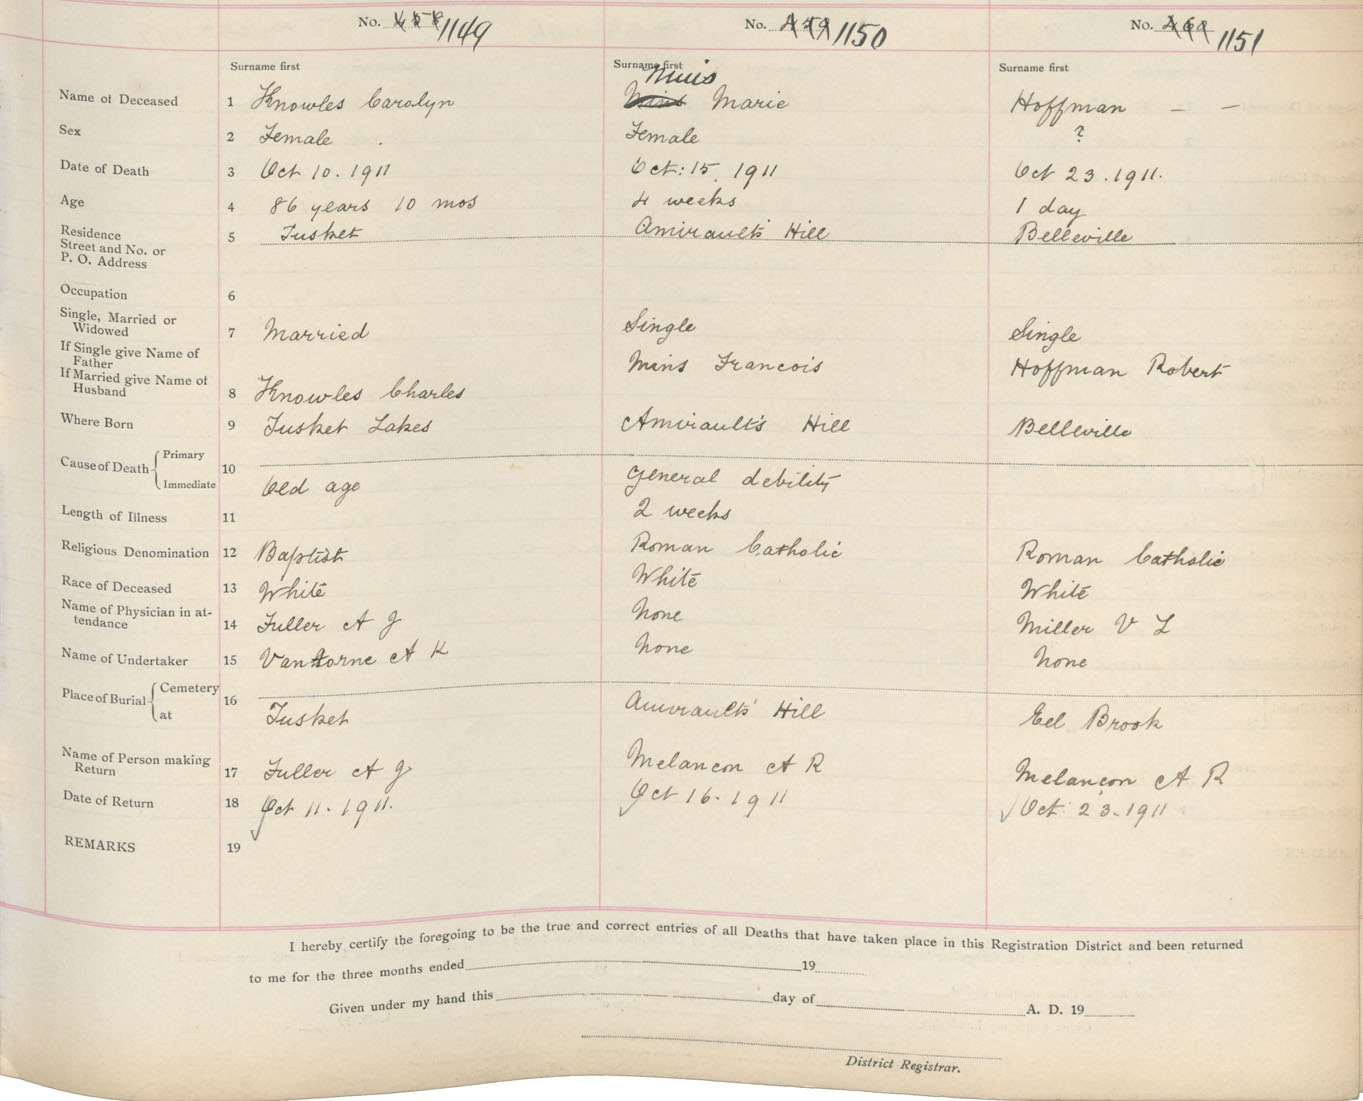 No. 1149 No. 1150 No. 1151
Surname first Surname first Surname first
Muis
Name of Deceased 1 Knowles Carolyn Marie Hoffman — —
Sex 2 Female Female ?
Date of Death 3 Oct 10. 1911 Oct: 15, 1911 Oct 23. 1911.
Age 4 86 years 10 mos 4 weeks 1 day
Residence
Street and No. or
P. O. Address 5 Tusket Amirault's Hill Belleville
Occupation 6
Single, Married or
Widowed 7 Married Single Single
If Single give Name of
Father Francois Hoffman Robert
If Married give Name of
Husband 8 Knowles Charles
Where Born 9 Tusket Lakes Amirault's Hill Belleville
Cause of Death Primary
Immediate 10 Old age General debility
Length of Illness 11 2 weeks
Religious Denomination 12 Baptist Roman Catholic Roman Catholic
Race of Deceased 13 White White White
Name of Physician in at-
tendance 14 Fuller A J None Miller V L
Name of Undertaker 15 VanHorne A K None None
Place of Burial Cemetery
at 16 Tusket Amirault's Hill Eel Brook
Name of Person making
Return 17 Fuller A J Melancon A R Melançon A R
Date of Return 18 Oct 11. 1911. Oct 16. 1911 Oct 23. 1911
REMARKS 19
I hereby certify the foregoing to be the true and correct entries of all Deaths that have taken place in this Registration District and been returned
to me for the three months ended 19
Given under my hand this day of A. D. 19
District Registrar.